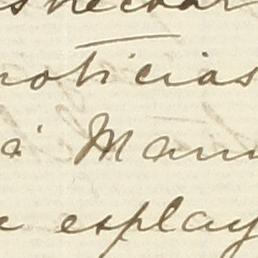 noticias
á Manu
e esplay